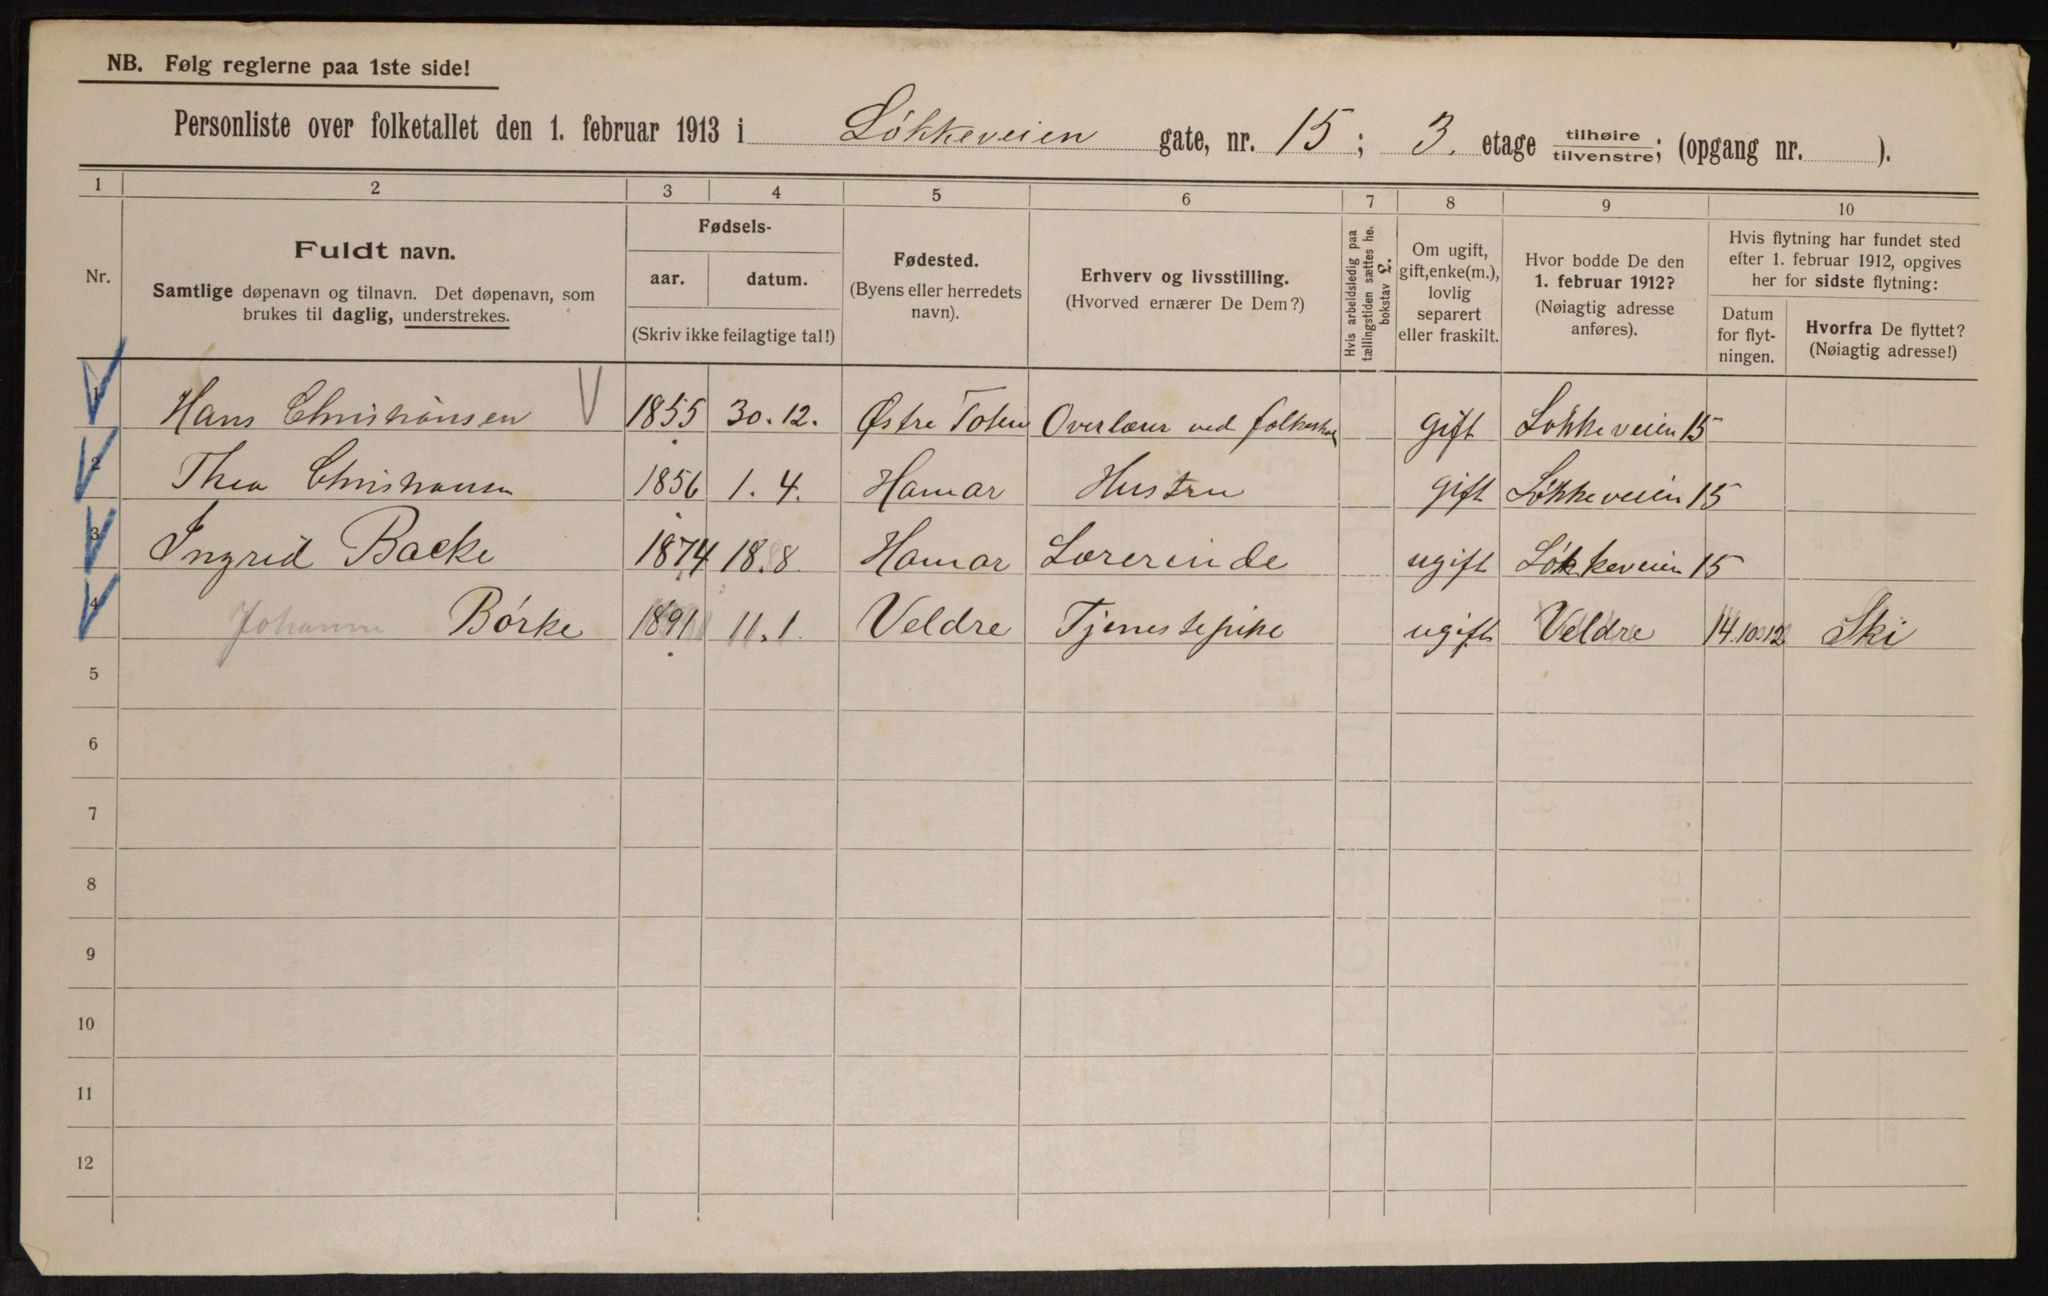 NB. Følg reglerne paa 1ste side!
Personliste over folketallet den 1. februar 1913 i Løkkeveien gate, nr. 15; 3. etage tilhøire tilvenstre; (opgang nr. ).
1 2 3 4 5 6 7 8 9 10
Nr.
Fuldt navn.
Samtlige døpenavn og tilnavn. Det døpenavn, som
brukes til daglig, understrekes.
Fødsels-
aar. datum.
(Skriv ikke feilagtige tal!)
Fødested.
(Byens eller herredets
navn).
Erhverv og livsstilling.
(Hvorved ernærer De Dem?)
Hvis arbeidsledig paa
tællingstiden sættes he.
bokstav L.
Om ugift,
gift, enke(m.),
lovlig
separert
eller fraskilt.
Hvor bodde De den
1. februar 1912?
(Nøiagtig adresse
anføres).
Hvis flytning har fundet sted
efter 1. februar 1912, opgives
her for sidste flytning:
Datum
for flyt-
ningen.
Hvorfra De flyttet?
(Nøiagtig adresse!)
1 Hans Christiansen 1855 30.12. Østre Toten Overlærer ved folkeskol gift Løkkeveien 15
2 Thea Christiansen 1856 1.4. Hamar Hustru gift Løkkeveien 15
3 Ingrid Backe 1874 18.8. Hamar Lærerinde ugift Løkkeveien 15
4 Johanne Børke 1891 11.1. Veldre Tjenestepike ugift Veldre 14.10.12 Ski
5
6
7
8
9
10
11
12